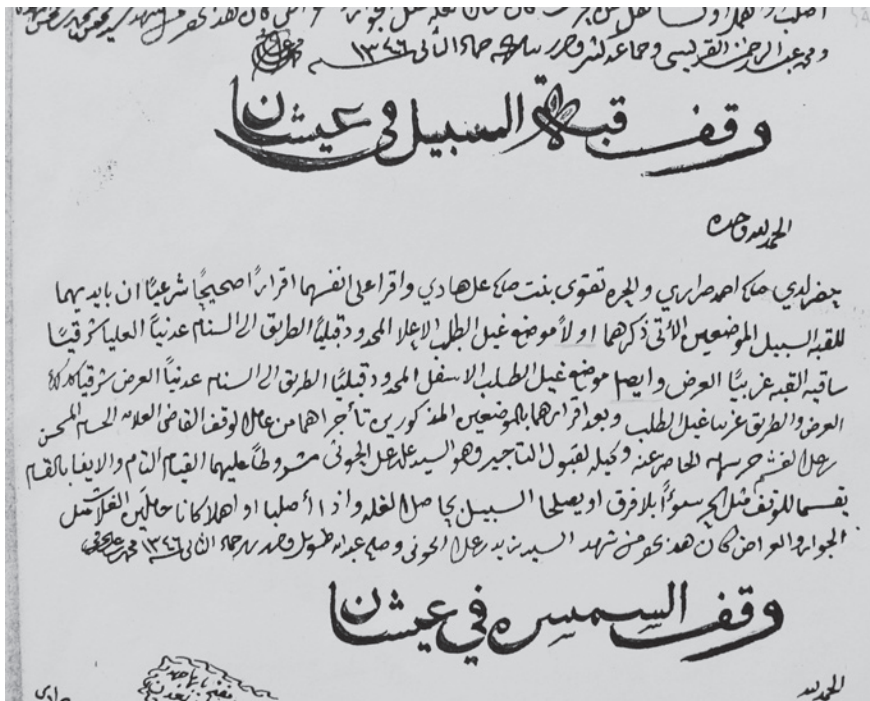 ومحمد عبد الرحمن القريسي وجماعه كثر وحرر بتاريخه جماد الثاني ١٣٤٦ سنه
وقف قبة السبيل في عيشان
الحمد لله وحده
حضر لدي صالح احمد صراري والحره تقوى بنت صالح علي هادي واقرا على انفسهما اقراراً صحيحاً شرعياً ان بايديهما
للقبه السبيل الموضعين الأتي ذكرهما اولاً موضع غيل الطلب الإعلا المحدود قبلياً الطريق الى السنام عدنياً العليا شرقياً
ساقيه القبه غربياً العرض وايضا موضع غيل الطلب الاسفل المحدود قبلياً الطريق الى السنام عدنياً العرض شرقياً كذلك
العرض والطريق غربيا غيل الطلب وبعد اقرارهما بالموضعين المذكورين تأجراهما من عامل الوقف القاضي العلامه الحسام المحسن
علي الحاضر عنه وكيله لقبول التاجير وهو السيد علي الحوثي مشروطاً عليهما القيام التام والايفا بالقسام
يقسما للوقف مثل الحر سوأً بلا فرق او يصلحا السبيل بحاصل الغله واذا أصلبا او اهملا كانا حاملين الغلا مثل
الجوار والعوارض كان هذا بمحضر من شهد السيد زيد علي الحوثي وصالح عبدالله طويل وحرر جماد الثاني ١٣٤٦
وقف السمسره في عيشان
الحمد لله